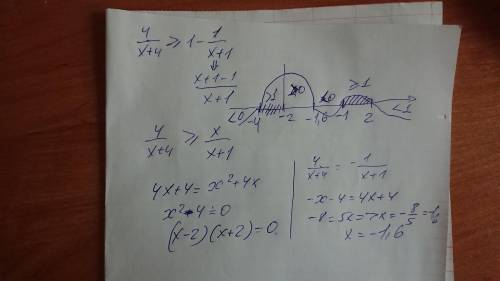 4/(x+4) ≥ 1 - 1/(x+1)
⇓
(x+1-1)/(x+1)
>1 <0 ≥1
<0 -4 -2 -1,6 -1 2 <1
4/(x+4) ≥ x/(x+1)
4x+4 = x²+4x
x²-4=0
(x-2)(x+2)=0.
4/(x+4) = -1/(x+1)
-x-4=4x+4
-8=5x=>x=-8/5=-1,6
x=-1,6